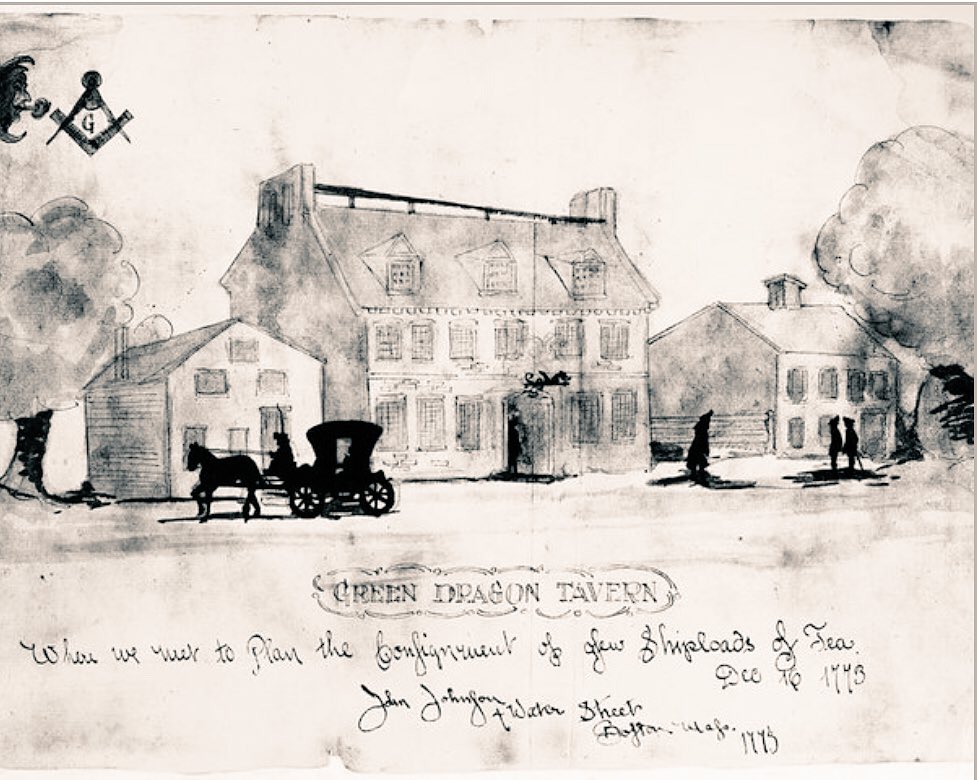 G
GREEN DRAGON TAVERN
Where we met to Plan the Conſignment of few Shiploads of Tea.
Dec 16 1773
John Johnſon
4 Water Street
Boſton. Maſs.
1773